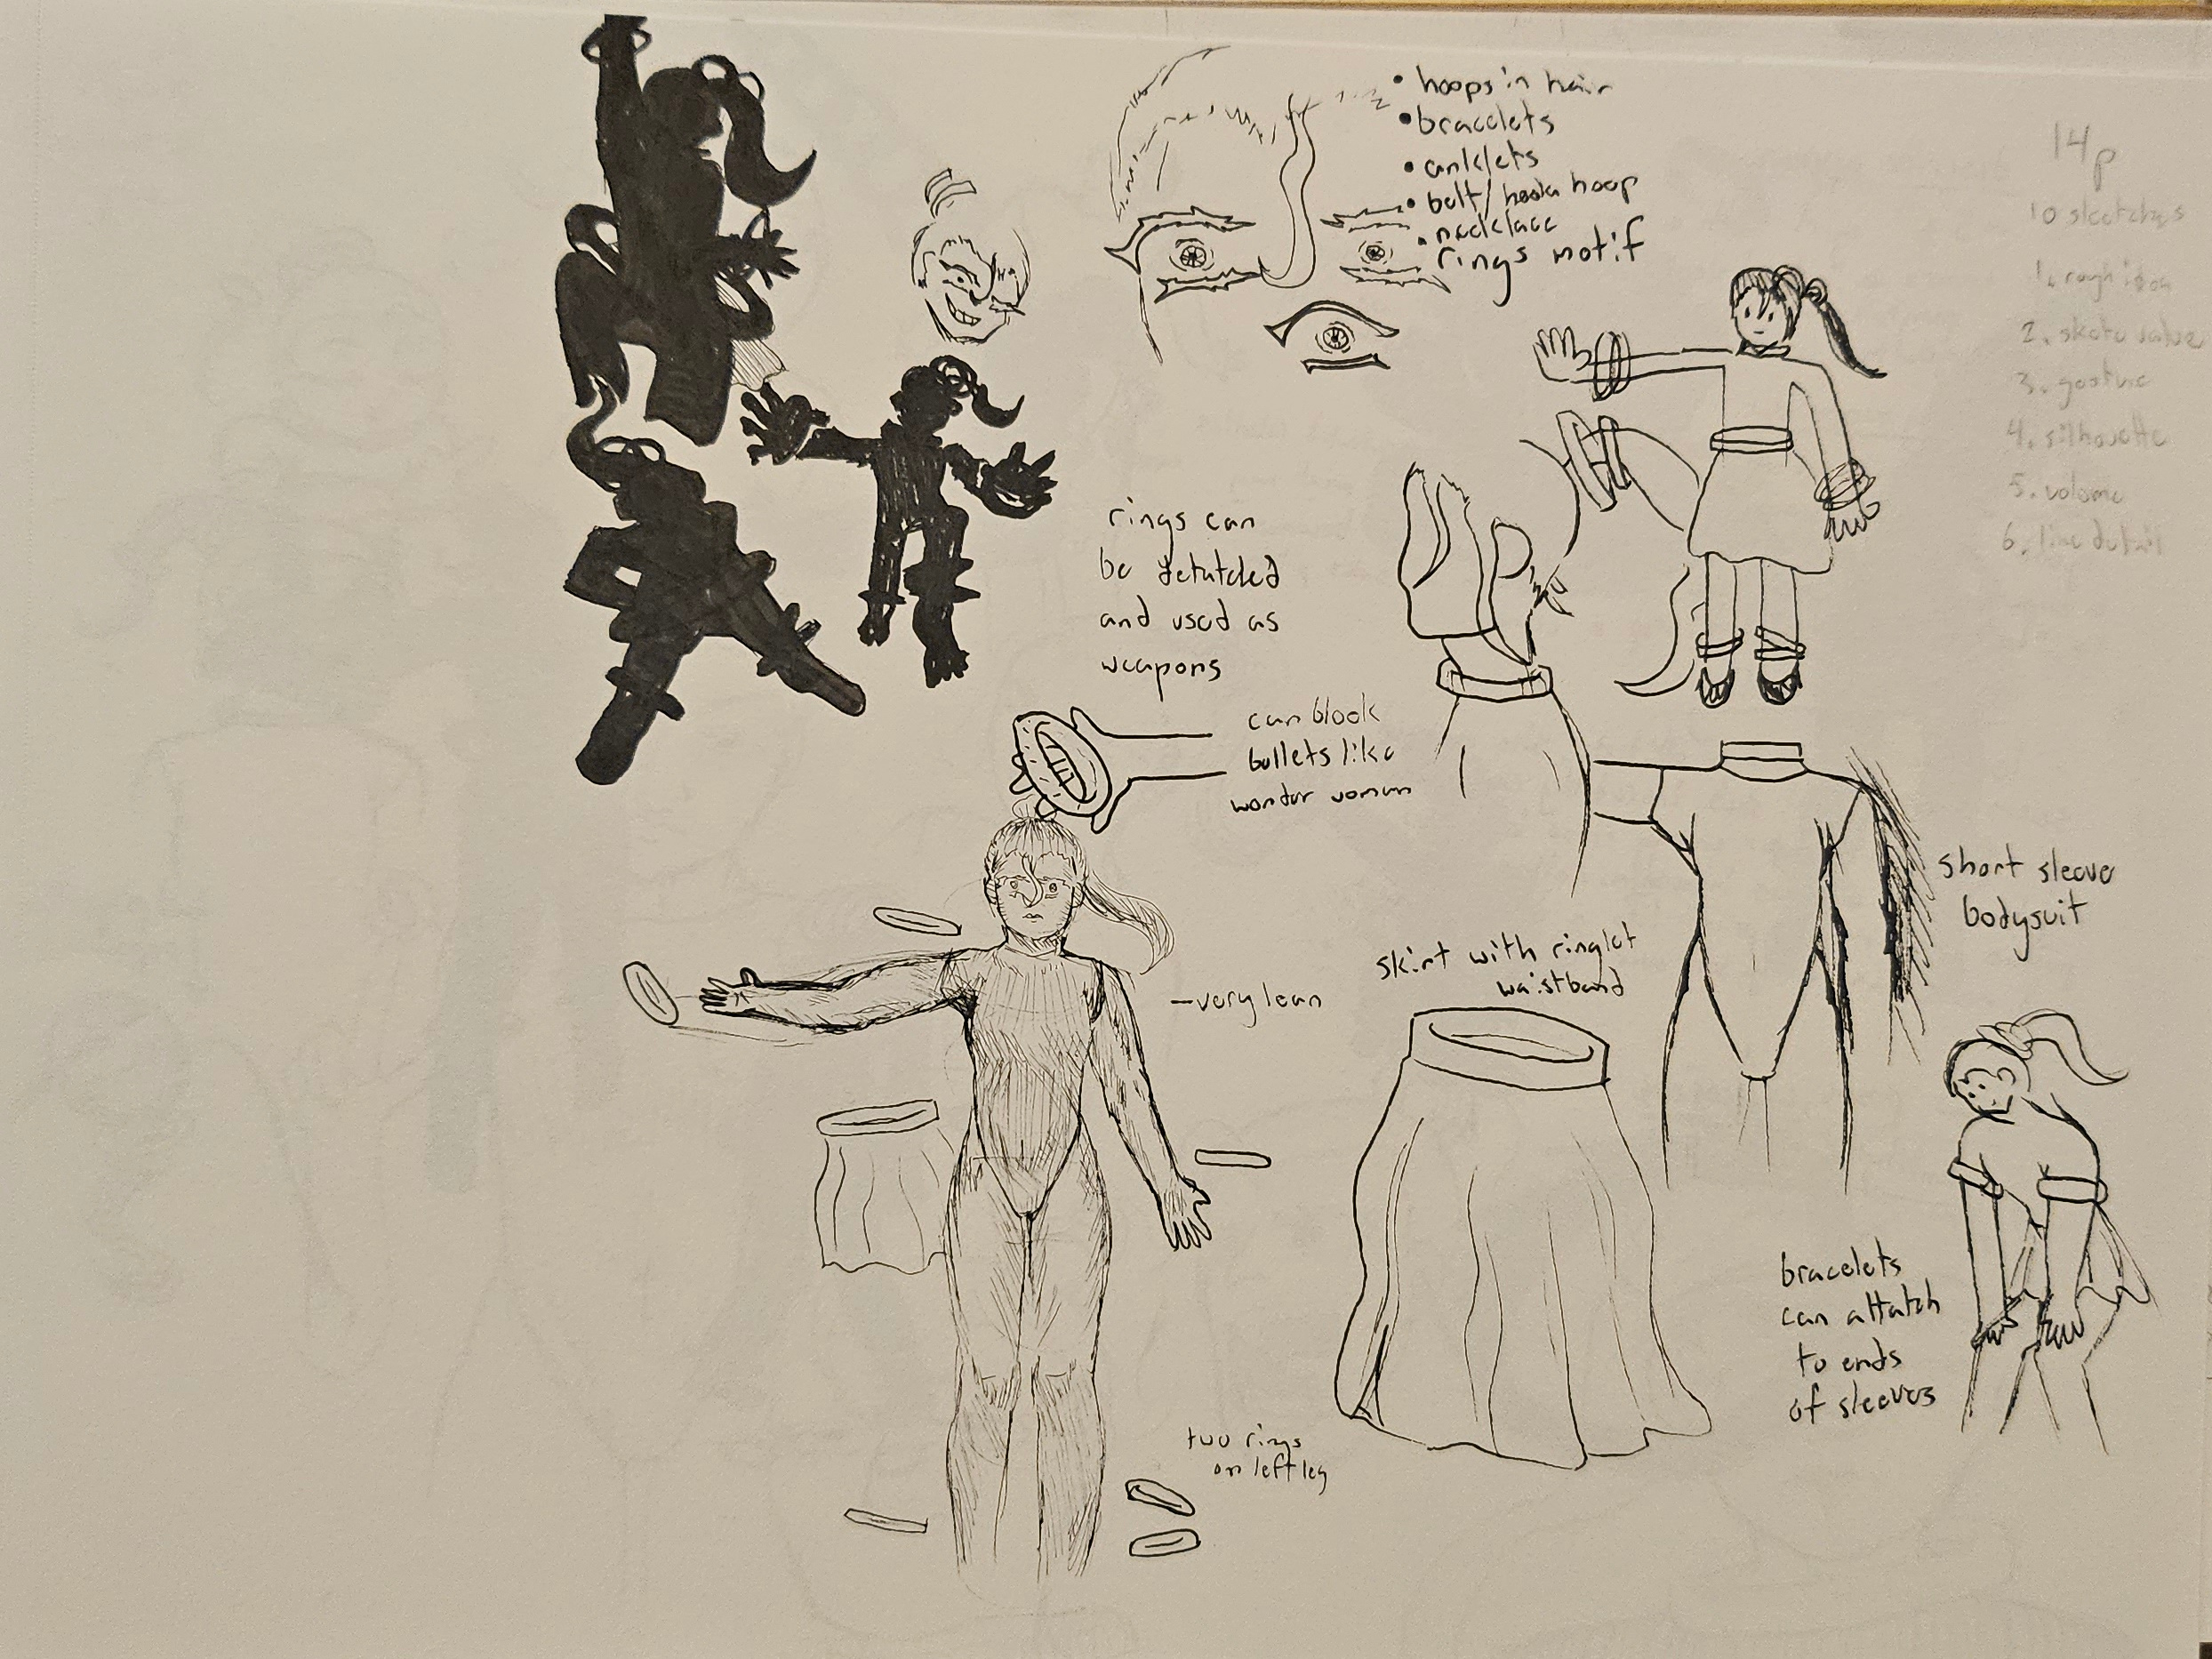 • hoops in hair
• bracelets
• anklets
• belt/ hoop
• necklace
rings motif
14p
10 sketches
1. rough idea
2. skate value
3. gesture
4. silhouette
5. volume
6. line detail
rings can
be detatched
and used as
weapons
can block
bullets like
wonder woman
short sleeve
bodysuit
skirt with ringlet
waistband
- very lean
bracelets
can attatch
to ends
of sleeves
two rings
on left leg